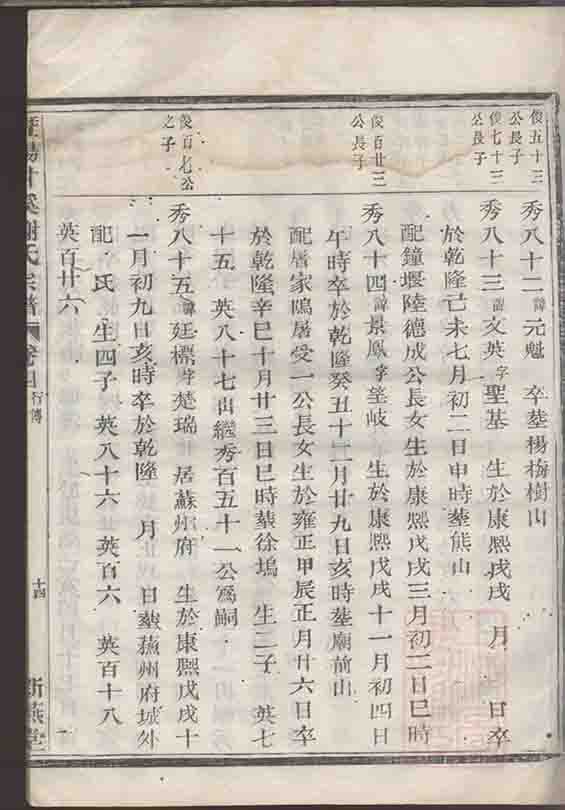 俊五十三
公長子
俊七十三
公長子
俊百廿三
公長子
俊百七公
之子
秀八十二諱元魁 卒塟楊梅樹山
秀八十三諱文英字聖基 生於康熙戊戌 月 日卒
於乾隆己未七月初二日申時塟熊山
配鐘堰陸德成公長女生於康熙戊戌三月初二日巳時
秀八十四諱景鳳字峚岐 生於康熙戊戌十一月初四日
午時卒於乾隆癸丑十二月廿九日亥時塟廟前山
配屠家隝屠受一公長女生於雍正甲辰正月廿六日卒
於乾隆辛巳十月廿三日巳時塟徐塢 生二子 英七
十五 英八十七出繼秀百五十一公爲嗣
秀八十五諱廷標字楚瑞 居蘇州府 生於康熙戊戌十
一月初九日亥時卒於乾隆 月 日塟蘇州府城外
配 氏 生四子 英八十六 英百六 英百十八
英百廿六
暨陽汁溪謝氏宗譜 卷四 行傳 十四 新燕堂